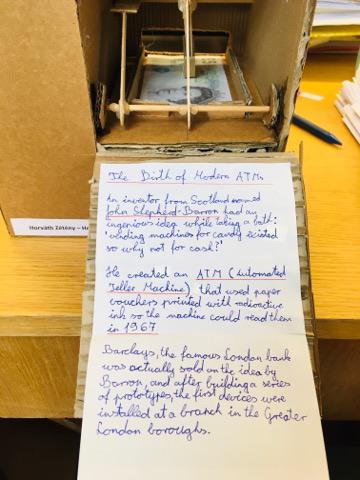 Horváth Zétény –
The Birth of Modern ATMs
An inventor from Scotland named
John Shepherd-Barron had an
ingenious idea while taking a bath:
'vending machines for candy existed
so why not for cash?'
He created an ATM (Automated
Teller Machine) that used paper
vouchers printed with radioactive
ink so the machine could read them
in 1967
Barclays, the famous London bank
was actually sold on the idea by
Barron, and after building a series
of prototypes, the first devices were
installed at a branch in the Greater
London boroughs.